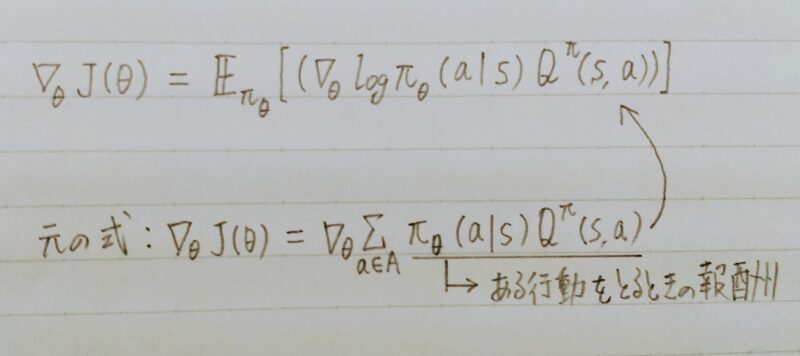 ∇_θ J(θ) = 𝔼_{π_θ} [(∇_θ log π_θ (a|s) Q^π(s,a))]
元の式:∇_θ J(θ) = ∇_θ Σ_{a∈A} π_θ (a|s) Q^π(s,a)
↳ ある行動をとるときの報酬